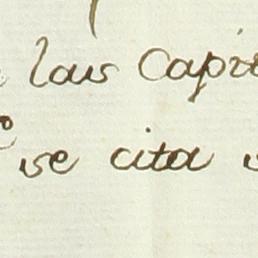 las Capi
se cita